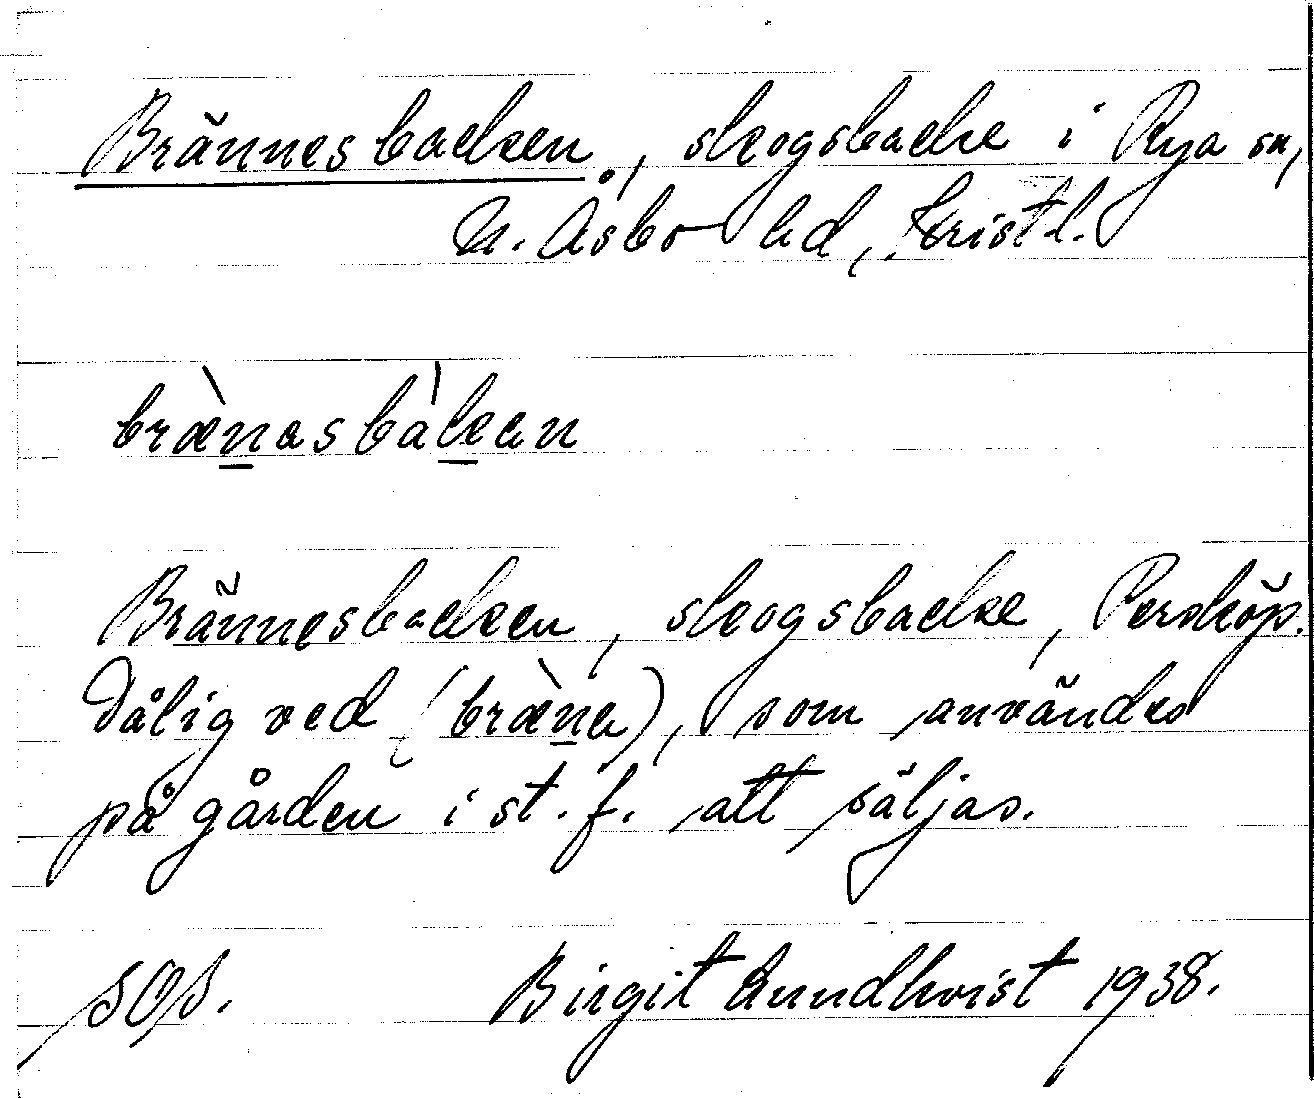 Brännesbacken, skogsbacke i Rya sn,
N. Åsbo hd, Kristl.
brænasbàkan
Brännesbacken, skogsbacke, Persköp.
Dålig ved (bræna), som användes
på gården i st. f. att säljas.
Birgit Lundkvist 1938.